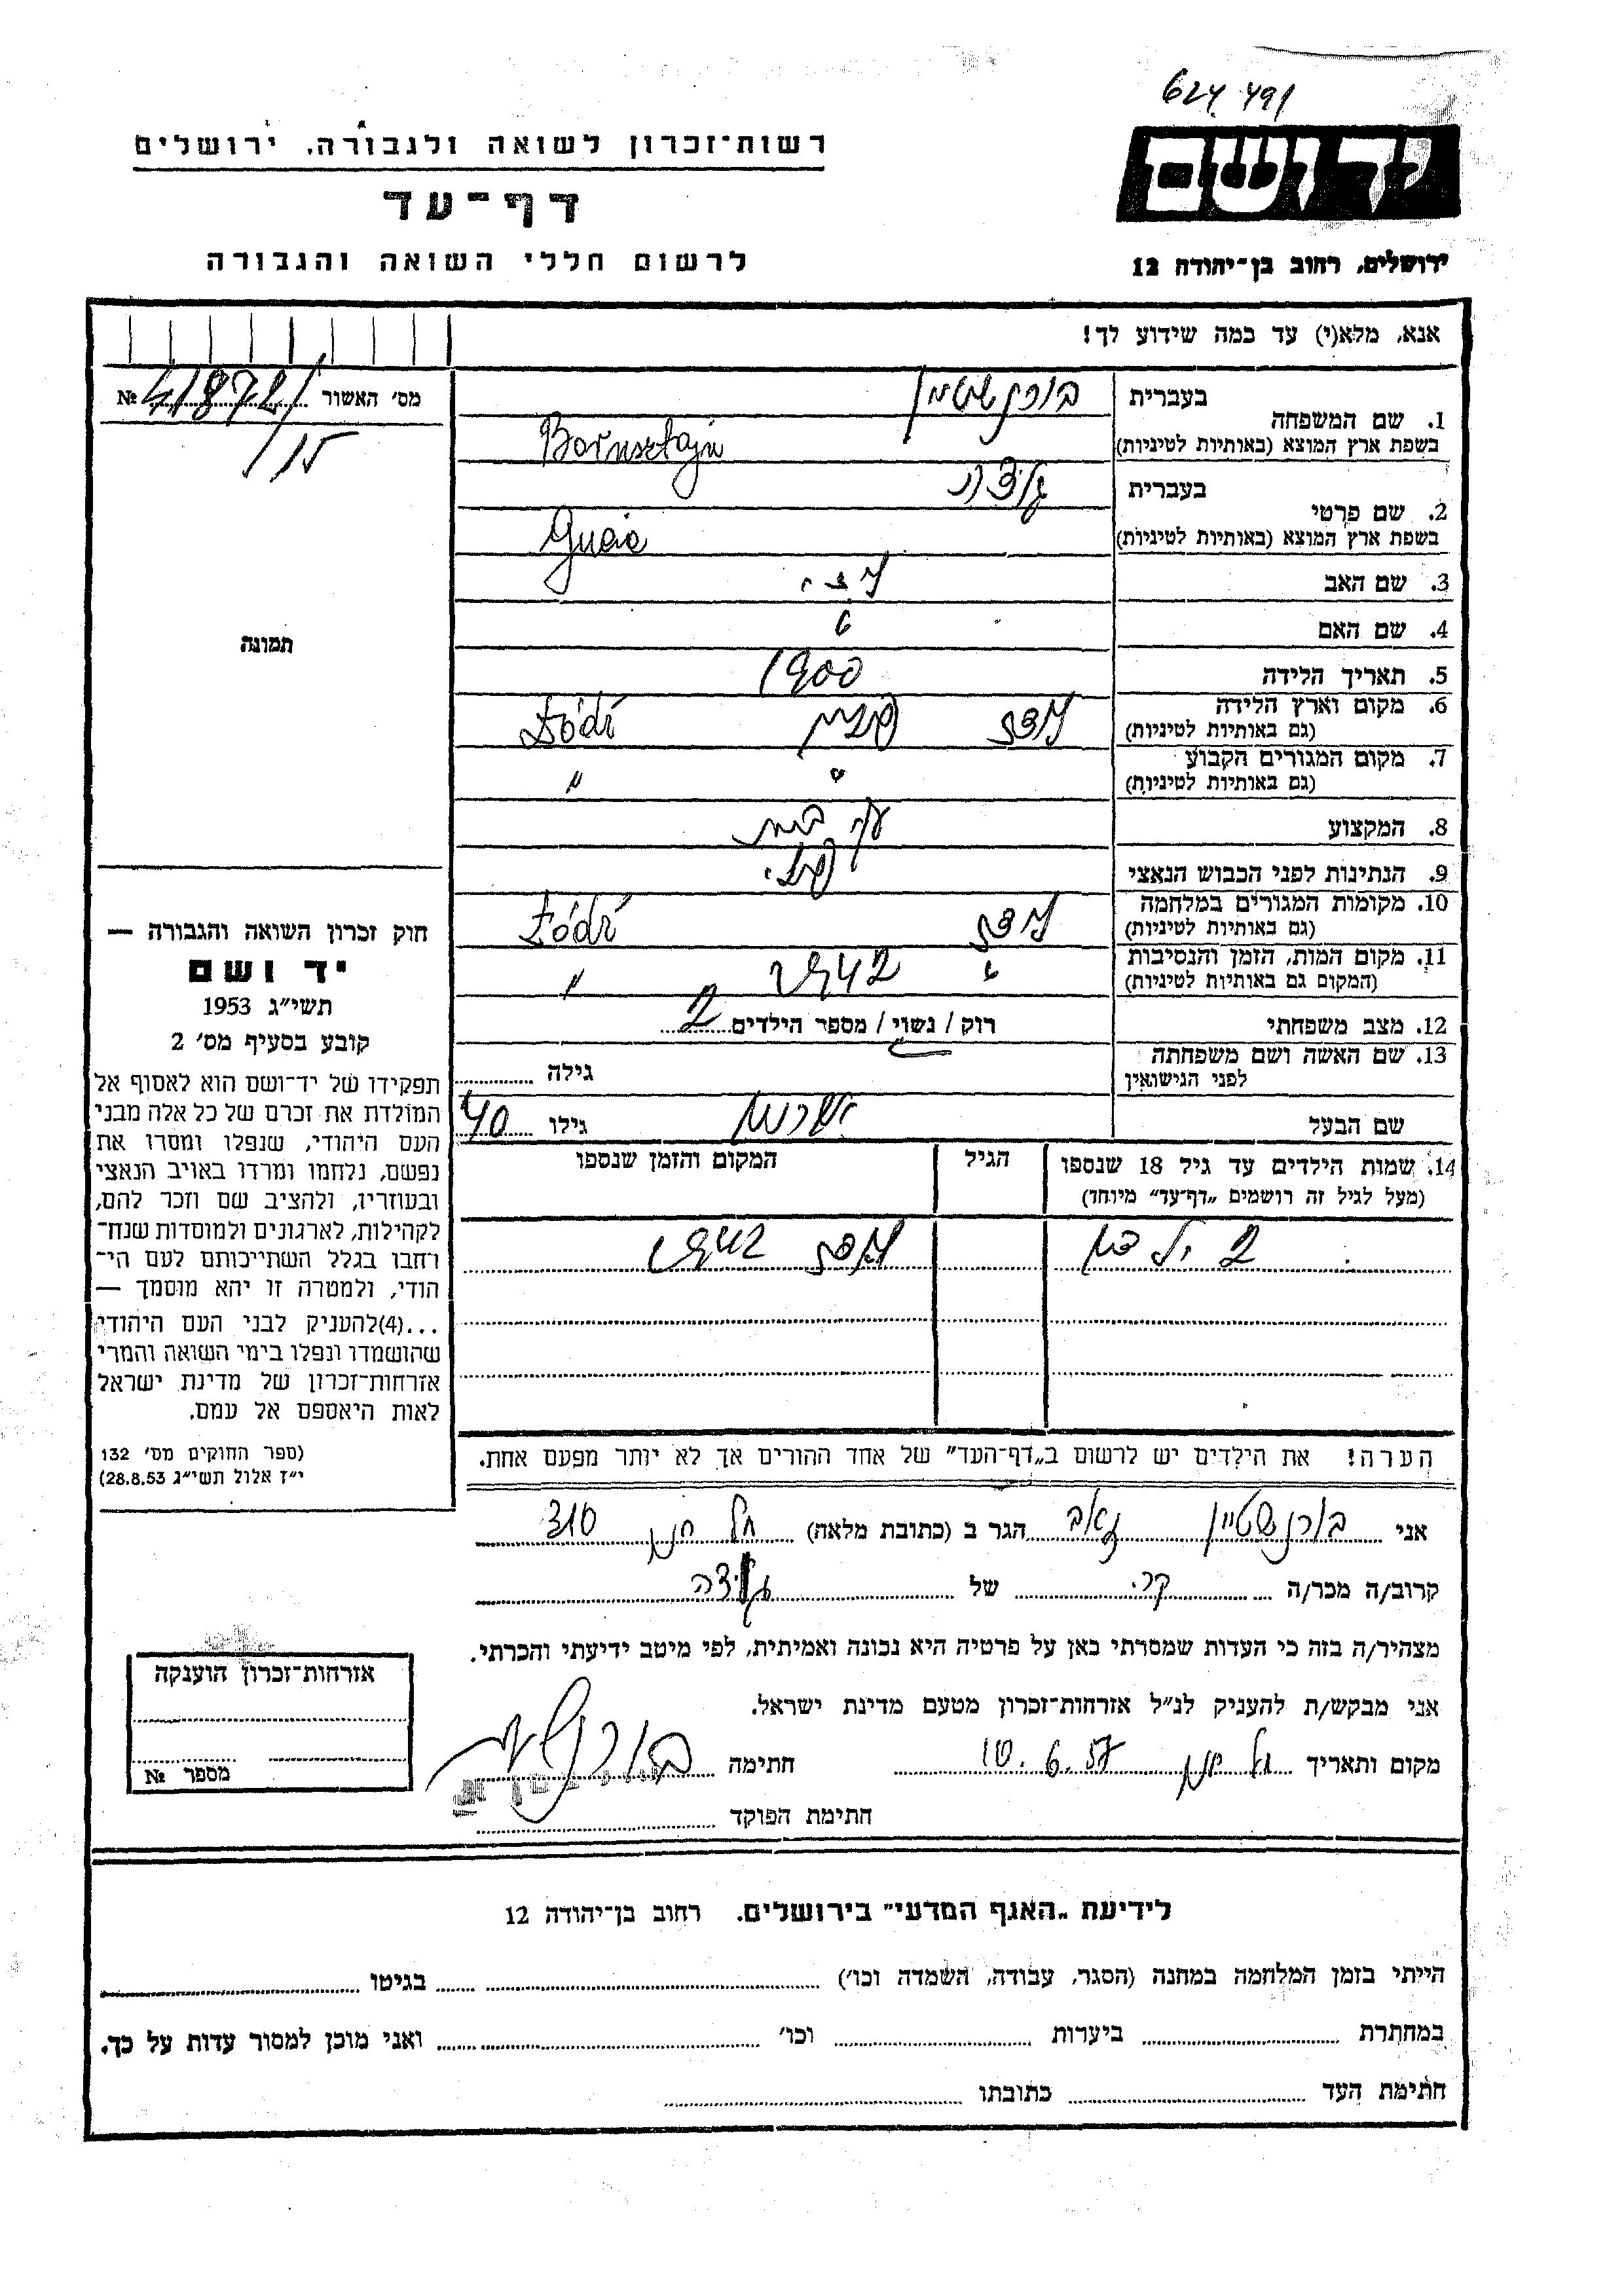 624 491
רשות־זכרון לשואה ולגבורה, ירושלים
דף־עד
לרשום חללי השואה והגבורה
יד ושם
ירושלים, רחוב בן־יהודה 12
אנא, מלא(י) עד כמה שידוע לך!
מס׳ האשור 41872/ №
/15
תמונה
1. שם המשפחה
בעברית בורנשטיין
בשפת ארץ המוצא (באותיות לטיניות) Bornsztajn
2. שם פרטי
בעברית
בשפת ארץ המוצא (באותיות לטיניות) Gucia
3. שם האב
4. שם האם
5. תאריך הלידה 1900
6. מקום וארץ הלידה (גם באותיות לטיניות) לודז פולין Łódź
7. מקום המגורים הקבוע (גם באותיות לטיניות) " "
8. המקצוע עקרת בית
9. הנתינות לפני הכבוש הנאצי פולני
10. מקומות המגורים במלחמה (גם באותיות לטיניות) לודז Łódź
11. מקום המות, הזמן והנסיבות (המקום גם באותיות לטיניות) " 1942 "
12. מצב משפחתי רוק / נשוי / מספר הילדים 2
13. שם האשה ושם משפחתה לפני הנישואין גילה
שם הבעל גילו 40
14. שמות הילדים עד גיל 18 שנספו
(מעל לגיל זה רושמים „דף־עד״ מיוחד)
הגיל
המקום והזמן שנספו
2 ילדים לודז
הערה! את הילדים יש לרשום ב„דף־העד״ של אחד ההורים אך לא יותר מפעם אחת.
חוק זכרון השואה והגבורה —
יד ושם
תשי״ג 1953
קובע בסעיף מס׳ 2
תפקידו של יד־ושם הוא לאסוף אל
המולדת את זכרם של כל אלה מבני
העם היהודי, שנפלו ומסרו את
נפשם, נלחמו ומרדו באויב הנאצי
ובעוזריו, ולהציב שם וזכר להם,
לקהילות, לארגונים ולמוסדות שנח־
רחבו בגלל השתייכותם לעם הי־
הודי, ולמטרה זו יהא מוסמך —
...(4)להעניק לבני העם היהודי
שהושמדו ונפלו בימי השואה והמרי
אזרחות־זכרון של מדינת ישראל
לאות היאספם אל עמם.
(ספר החוקים מס׳ 132
י״ז אלול תשי״ג 28.8.53)
אני בורנשטיין זאב הגר ב (כתובת מלאה) 310
קרוב/ה מכר/ה של
מצהיר/ה בזה כי העדות שמסרתי כאן על פרטיה היא נכונה ואמיתית, לפי מיטב ידיעתי והכרתי.
אני מבקש/ת להעניק לנ״ל אזרחות־זכרון מטעם מדינת ישראל.
מקום ותאריך 10.6.57 חתימה
חתימת הפוקד
אזרחות־זכרון הוענקה
מספר №
לידיעת „האגף המדעי״ בירושלים. רחוב בן־יהודה 12
הייתי בזמן המלחמה במחנה (הסגר, עבודה, השמדה וכו׳) בגיטו
במחתרת ביערות וכו׳ ואני מוכן למסור עדות על כך.
חתימת העד כתובתו